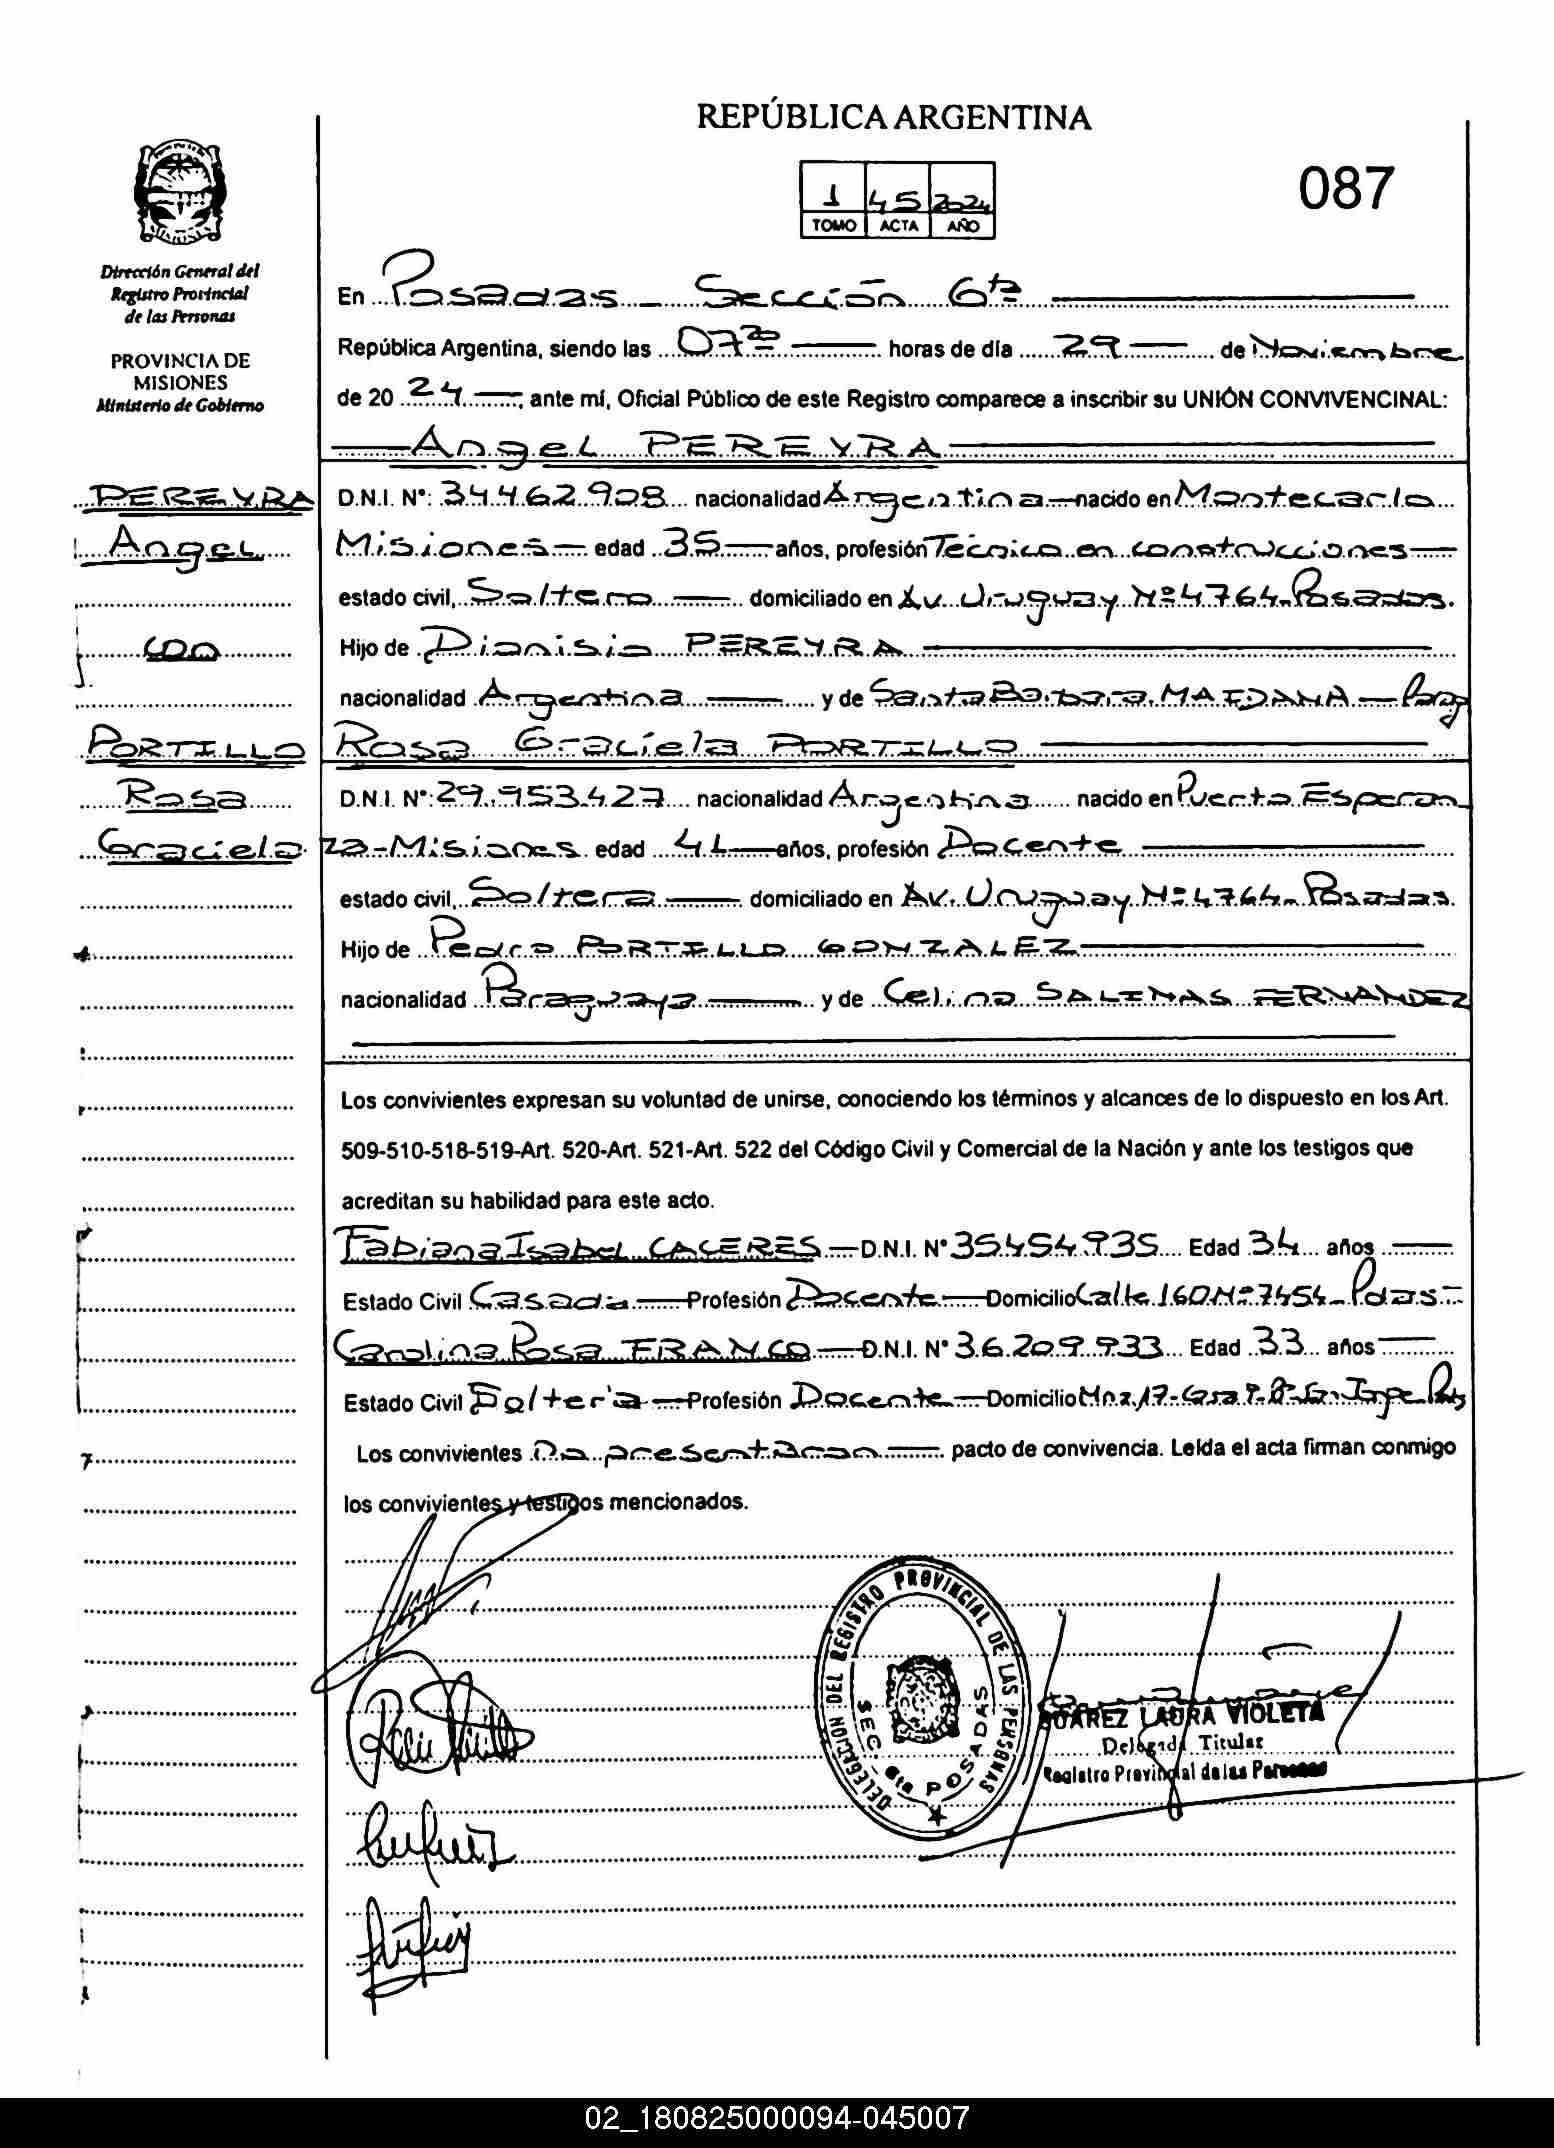 REPÚBLICA ARGENTINA
087
1 45 2024
TOMO ACTA AÑO
MISIONES
Dirección General del
Registro Provincial
de las Personas
PROVINCIA DE
MISIONES
Ministerio de Gobierno
PEREYRA
Angel
con
PORTILLO
Rosa
Graciela
En Posadas - Sección 6ta
República Argentina, siendo las 07:30 horas de día 29 de Noviembre
de 2024, ante mí, Oficial Público de este Registro comparece a inscribir su UNIÓN CONVIVENCINAL:
Angel PEREYRA
D.N.I. N°: 34.462.908 nacionalidad Argentina nacido en Montecarlo
Misiones edad 35 años, profesión Técnico en construcciones
estado civil, Soltero domiciliado en Av. Uruguay Nº 4764-Posadas.
Hijo de Dionisio PEREYRA
nacionalidad Argentina y de Santa Barbara MAIDANA - Parag
Rosa Graciela PORTILLO
D.N.I. N°: 29.953.427 nacionalidad Argentina nacido en Puerto Esperan
za-Misiones edad 41 años, profesión Docente
estado civil, Soltera domiciliado en Av. Uruguay Nº 4764-Posadas.
Hijo de Pedro PORTILLO GONZALEZ
nacionalidad Paraguaya y de Celina SALINAS FERNANDEZ
Los convivientes expresan su voluntad de unirse, conociendo los términos y alcances de lo dispuesto en los Art.
509-510-518-519-Art. 520-Art. 521-Art. 522 del Código Civil y Comercial de la Nación y ante los testigos que
acreditan su habilidad para este acto.
Fabiana Isabel CACERES D.N.I. N° 35.454.935 Edad 34 años
Estado Civil Casada Profesión Docente Domicilio Calle 160 Nº 7454-Pdas-
Carolina Rosa FRANCO D.N.I. N° 36.209.933 Edad 33 años
Estado Civil Soltera Profesión Docente Domicilio Mnz. 17-Casa
Los convivientes no presentaron pacto de convivencia. Leída el acta firman conmigo
los convivientes y testigos mencionados.
DELEGACION DEL REGISTRO PROVINCIAL DE LAS PERSONAS
SEC. 6ta POSADAS
SUAREZ LAURA VIOLETA
Delegada Titular
Registro Provincial de las Personas
02_180825000094-045007